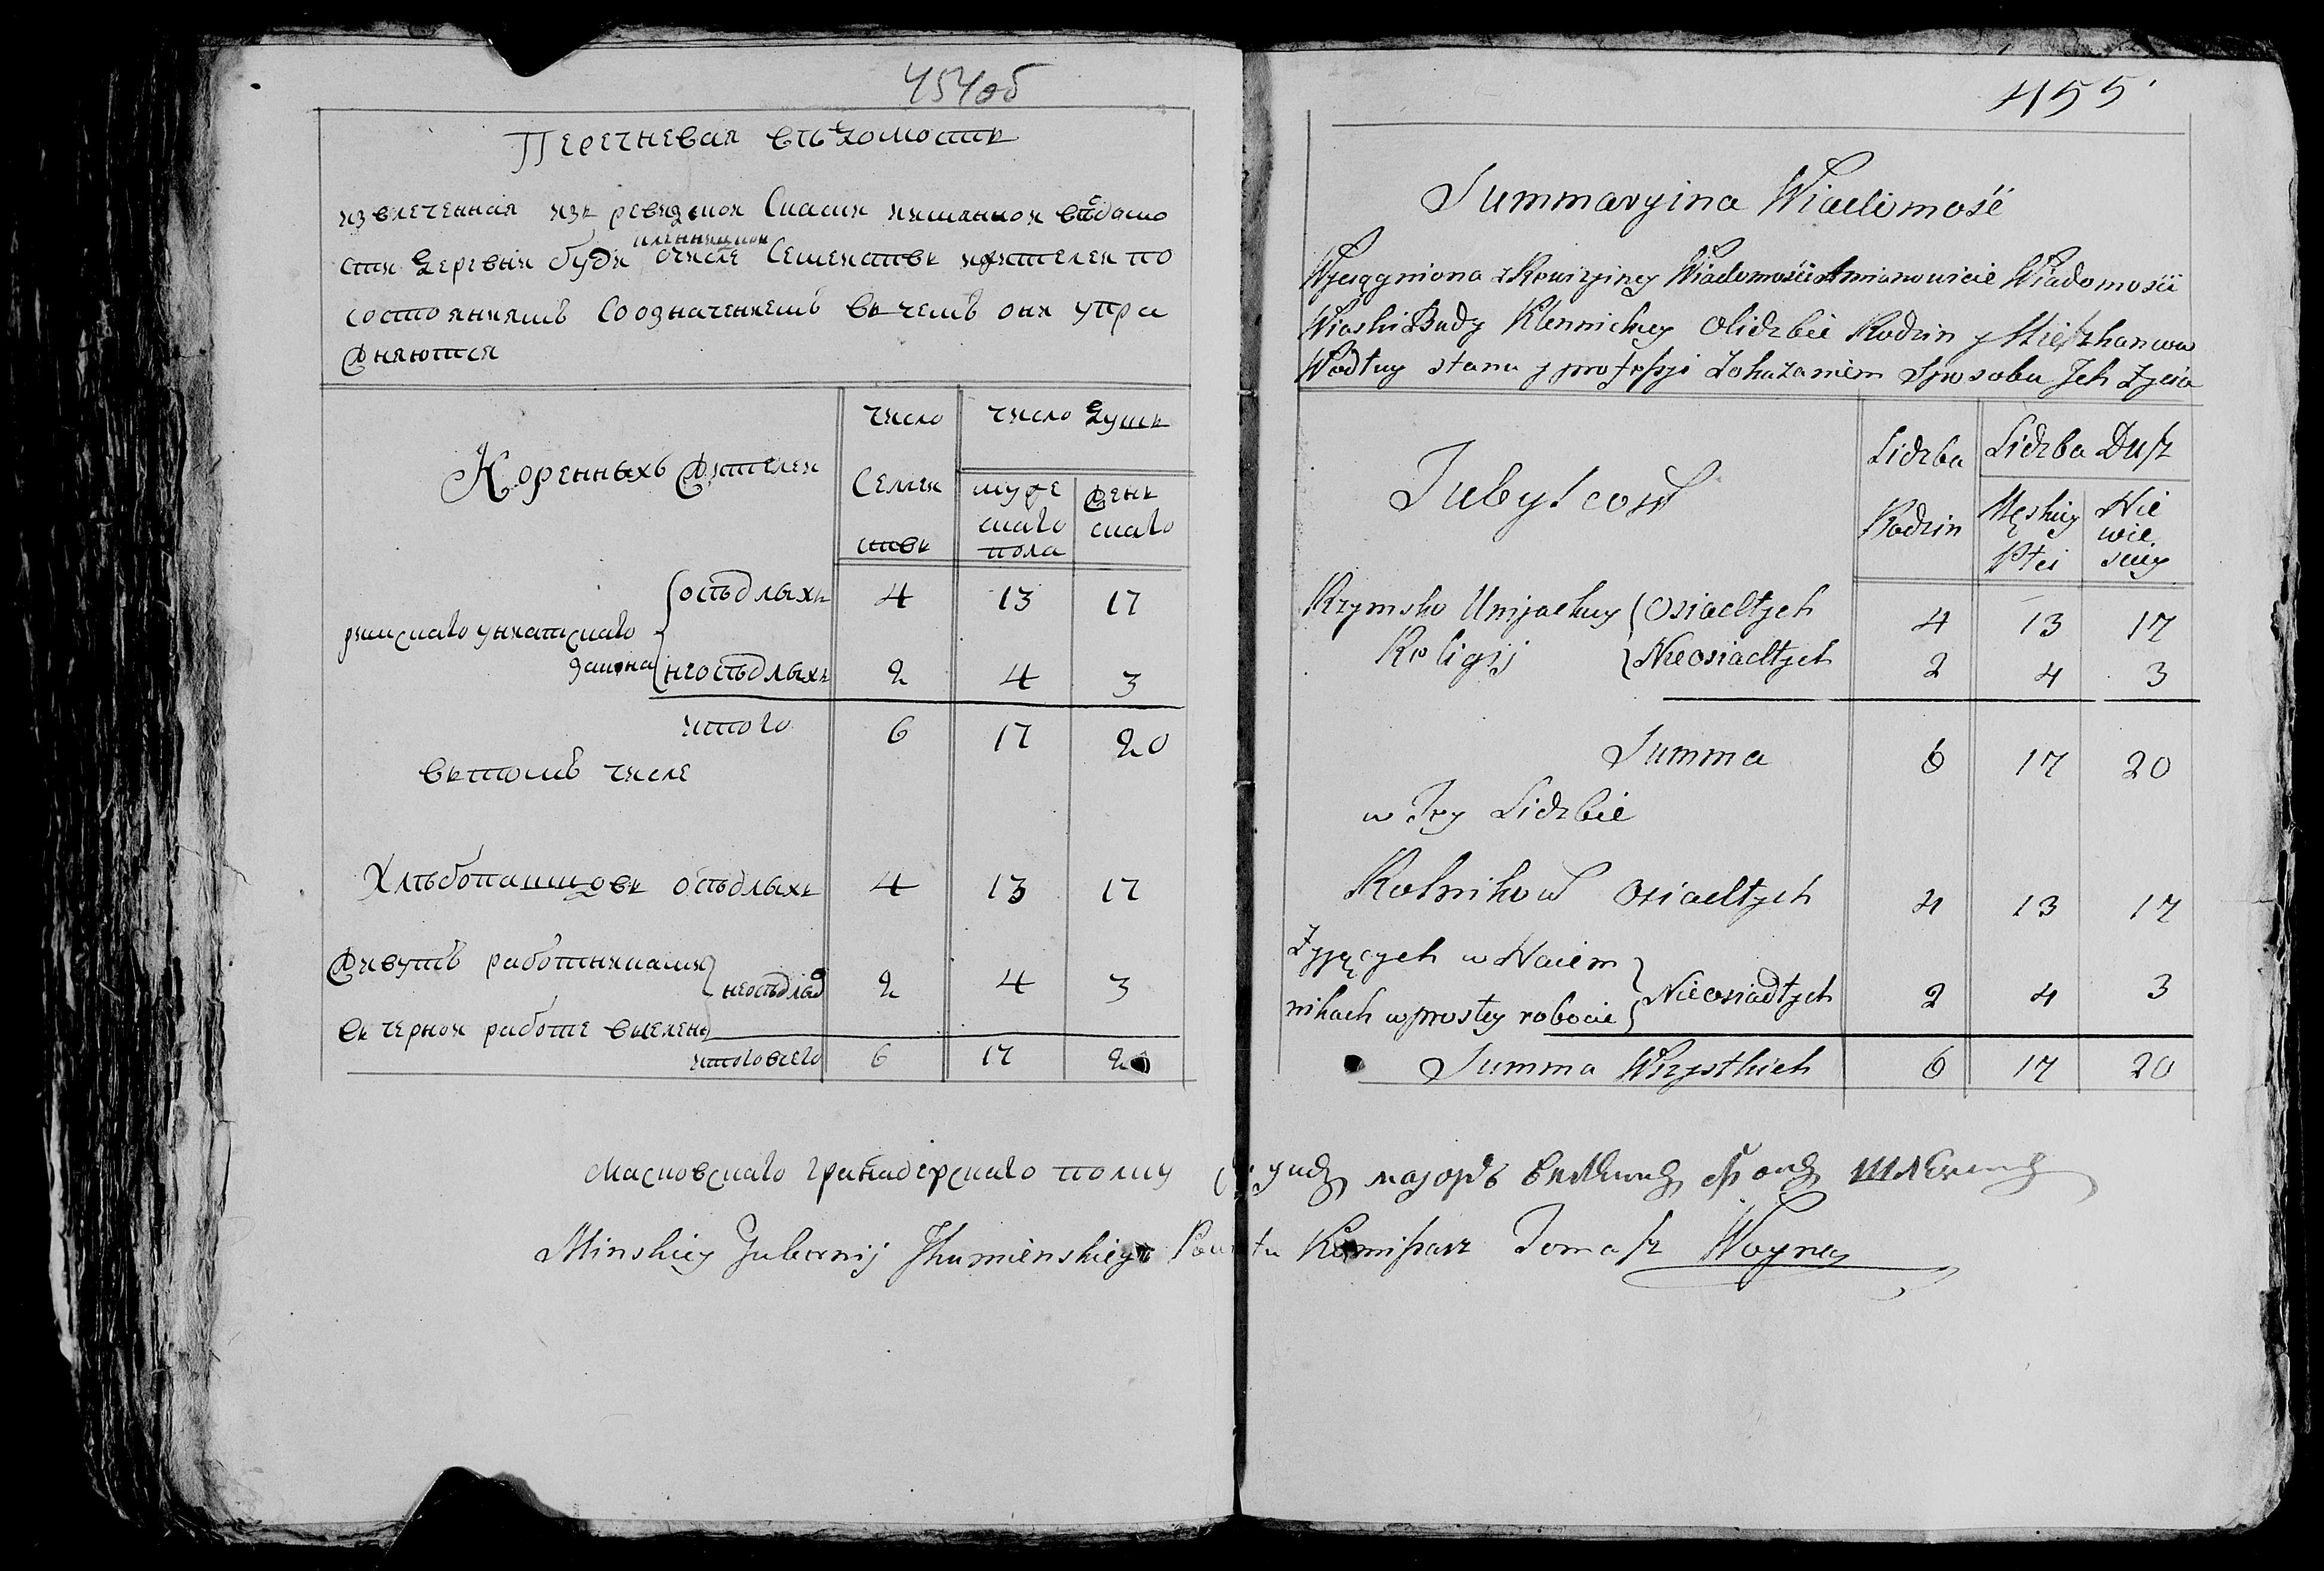 454об
Перечневая вѣдомость
извлеченная изъ ревизской Скаски имянной вѣдомо
сти деревни буди кленницкой очисле Семействъ жителей по
состояниямъ Соозначениемъ въ чемъ они упра
жняются
Коренныхъ жителей
число Семей ствъ
число душъ
муже скаго пола
жень скаго
римскаго униатскаго закона
осѣдлыхъ 4 13 17
неосѣдлыхъ 2 4 3
итого 6 17 20
въ томъ числе
Хлѣбопашцовъ осѣдлыхъ 4 13 17
Живутъ работниками
неосѣдлы 2 4 3
въ черной работе
итого всего 6 17 20
455
Summaryina Wiadomość
Wyciągniona z Rewizyiney Wiadomości Amianowicie Wiadomości
Wioski Budy Klennickiey Olidzbie Rodzin y Mieszkancow
Wedłuy stanu y professyi Zokazaniem Sposobu Jch Zycia
Tubylcow
Lidzba Rodzin
Lidzba Dusz
Męskiey Płci
Nie wie sciey
Rzymsko Unijackiey Religij
Osiadłych 4 13 17
Nieosiadłych 2 4 3
Summa 6 17 20
w Tey Lidzbie
Rolnikow Osiadłych 4 13 17
Zyjących w Naiem
nikach w prostey robocie
Nieosiadłych 2 4 3
Summa Wszystkich 6 17 20
Масковскаго гранадерскаго полку маіоръ
Minskiey Gubernij Jhumienskiego Powiatu Komissarz Tomasz Woyna